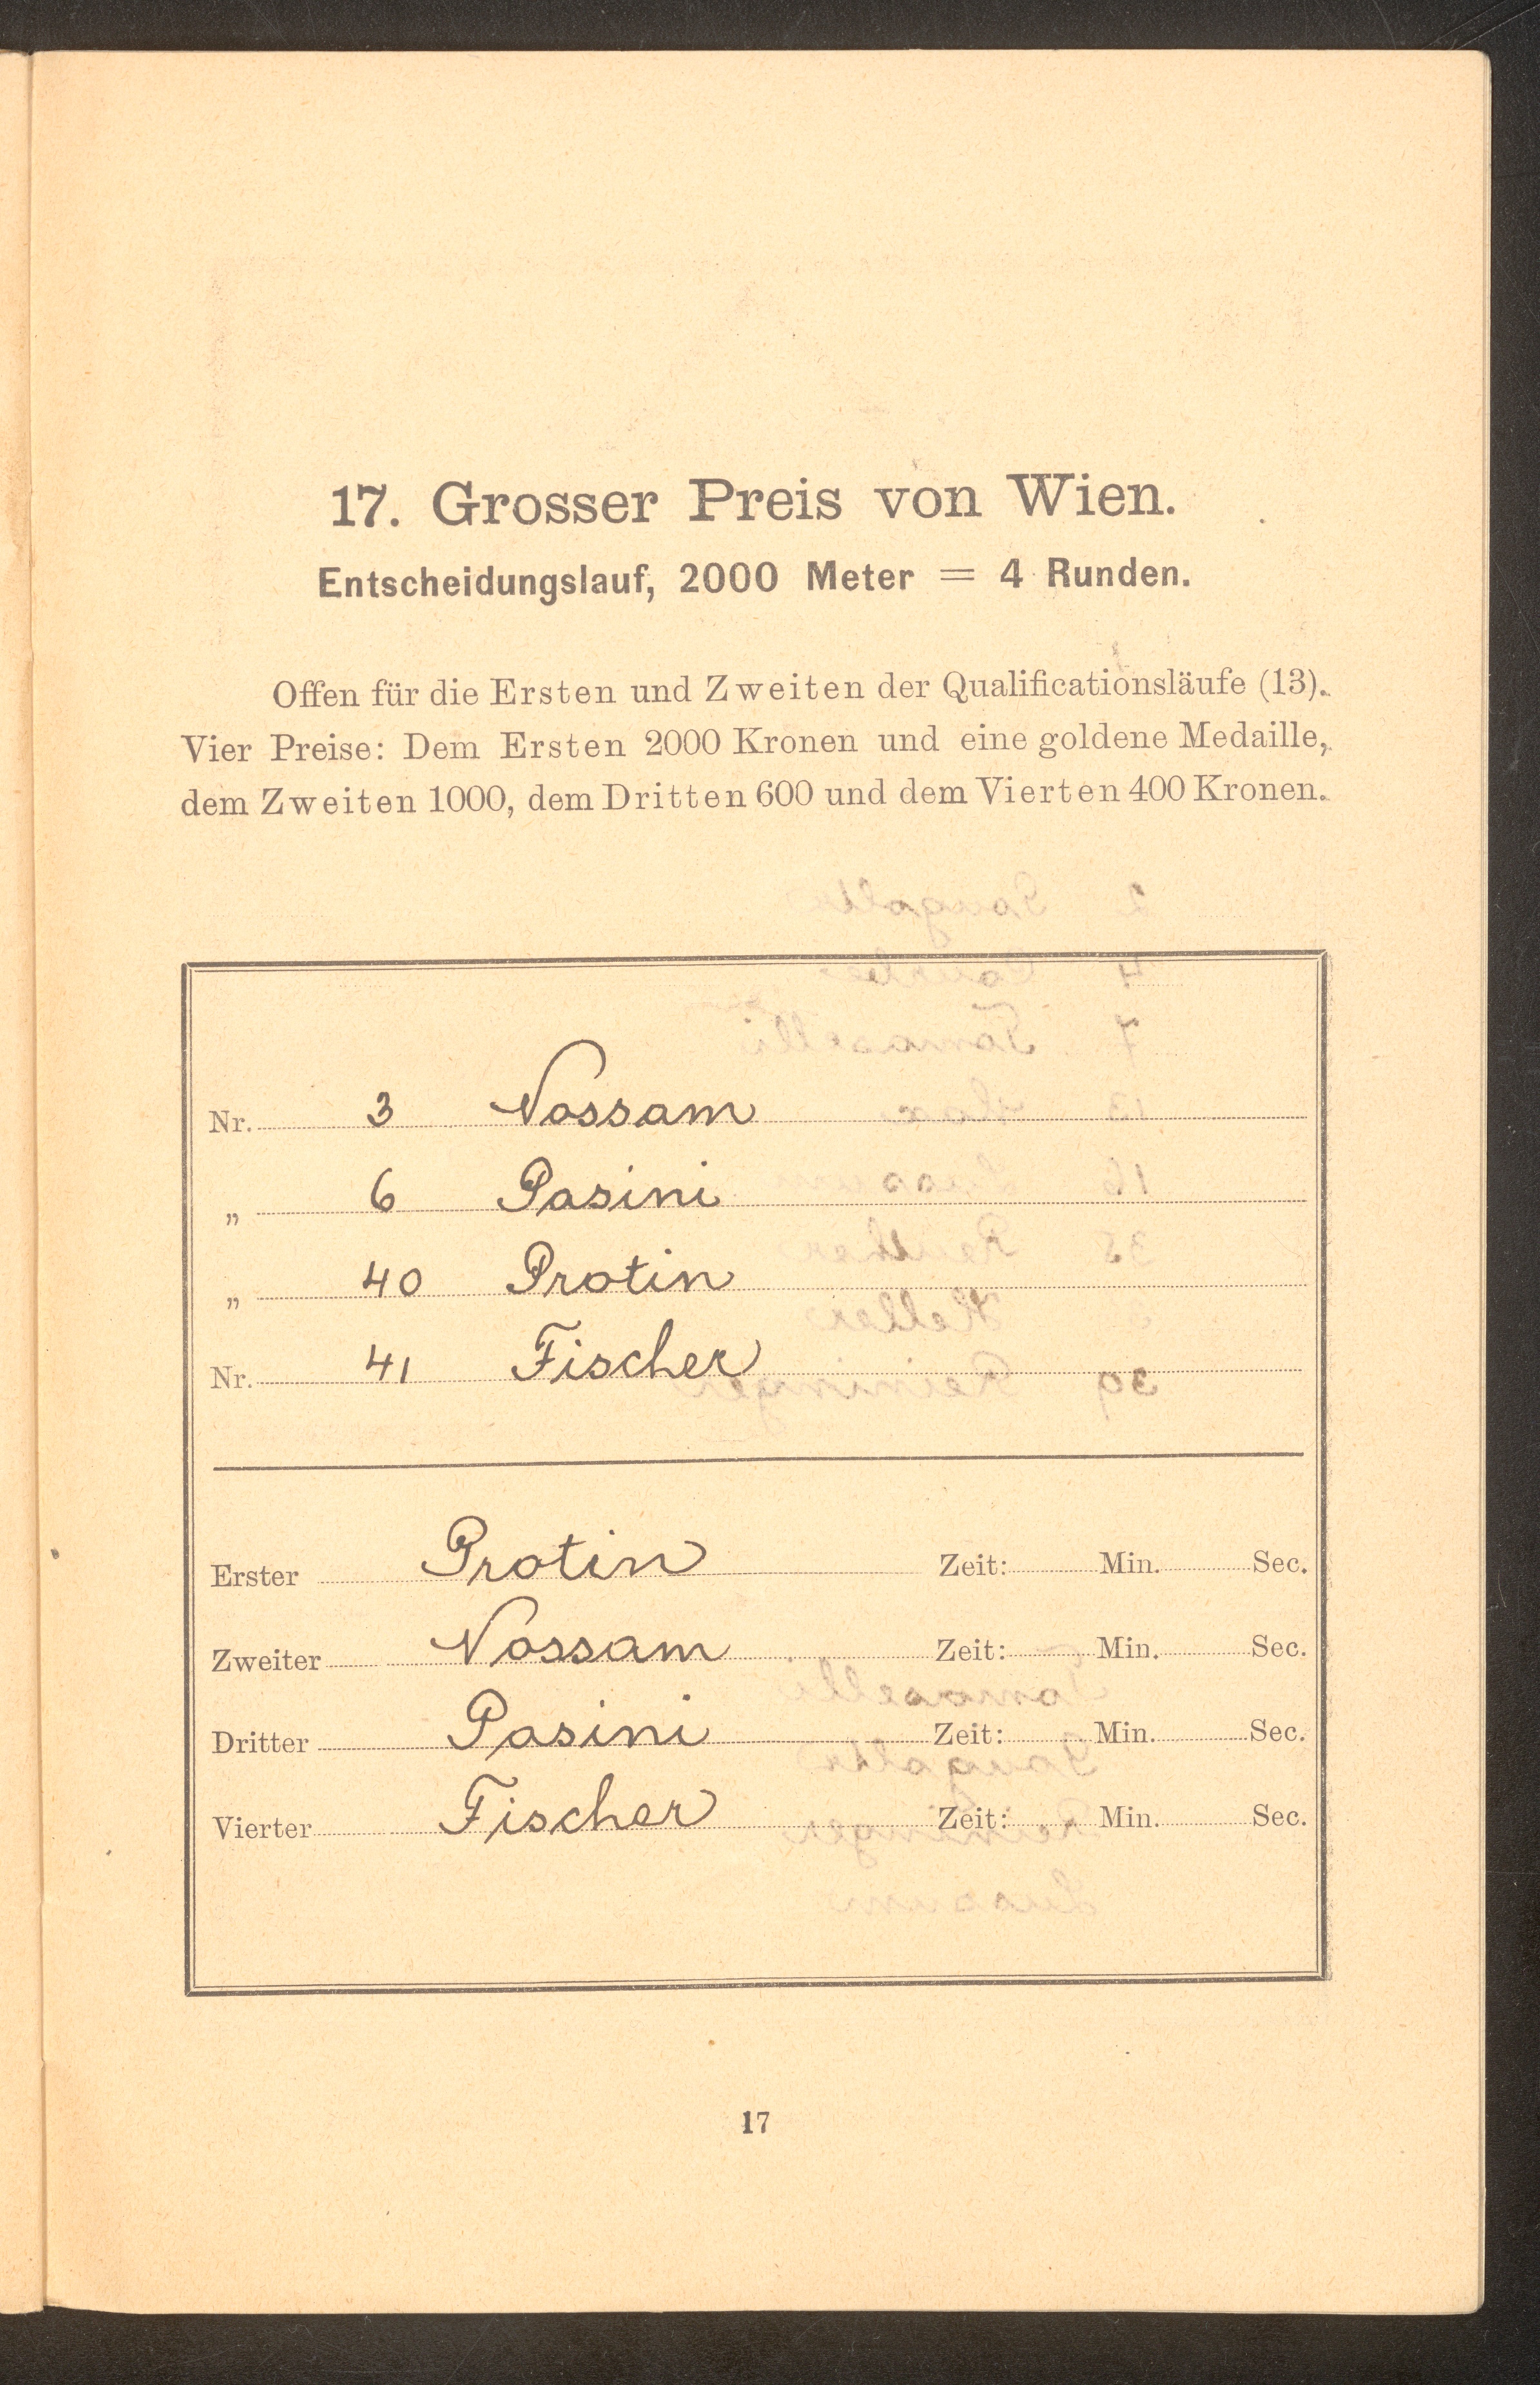 17. Grosser Preis von Wien.
Entscheidungslauf, 2000 Meter = 4 Runden.
Offen für die Ersten und Zweiten der Qualificationsläufe (13).
Vier Preise: Dem Ersten 2000 Kronen und eine goldene Medaille,
dem Zweiten 1000, dem Dritten 600 und dem Vierten 400 Kronen.
Nr. 3 Nossam
„ 6 Pasini
„ 40 Protin
Nr. 41 Fischer
Erster Protin Zeit: Min. Sec.
Zweiter Nossam Zeit: Min. Sec.
Dritter Pasini Zeit: Min. Sec.
Vierter Fischer Zeit: Min. Sec.
17